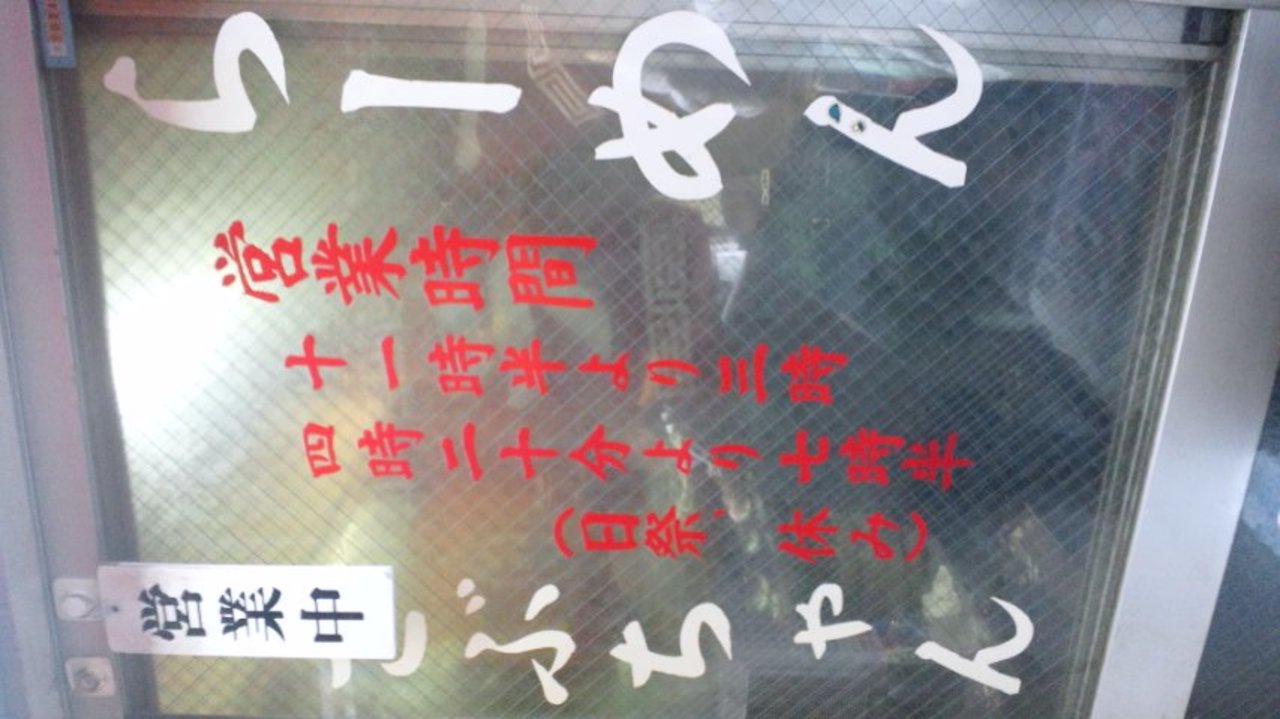 らーめん
営業時間
十一時半より三時
四時二十分より七時半
(日祭、休み)
でぶちゃん
営業中